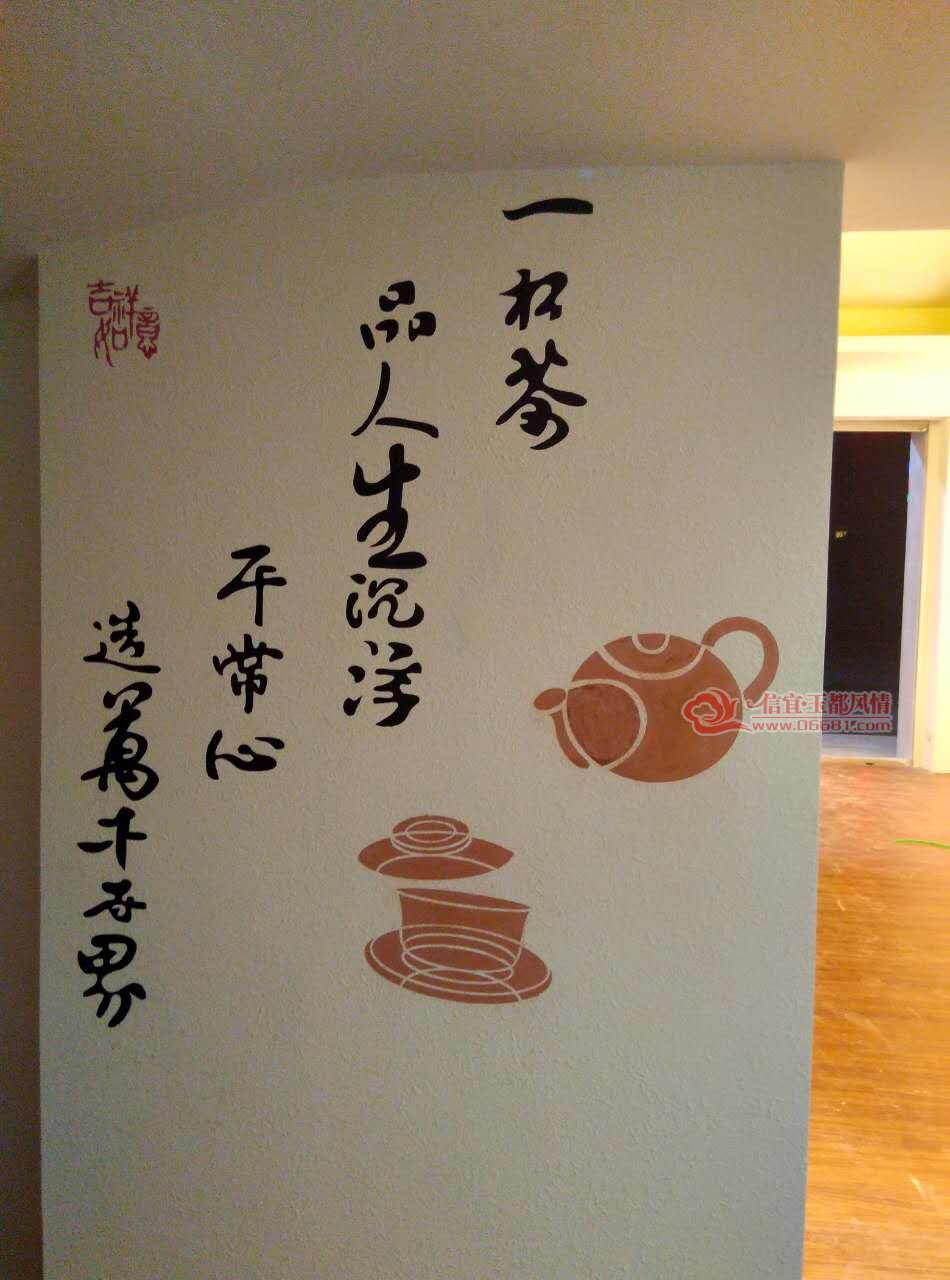 一杯茶
品人生沉浮
平常心
造萬千世界
吉祥如意
信宜·玉都风情
www.06681.com